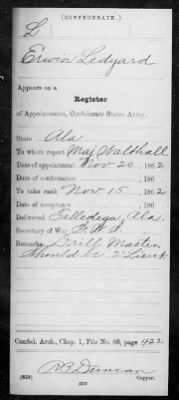 (CONFEDERATE.)
L
Erwin Ledyard
Appears on a
Register
of Appointments, Confederate States Army.
State Ala
To whom report Maj Walthall
Date of appointment Nov 20, 1862
Date of confirmation , 186
To take rank Nov 15, 1862
Date of acceptance , 186
Delivered Talledega, Ala.
Secretary of War
Remarks: Drill Master.
Should be 2' Lieut
Confed. Arch., Chap. 1, File No. 86, page 422
R B Duncan
Copyist.